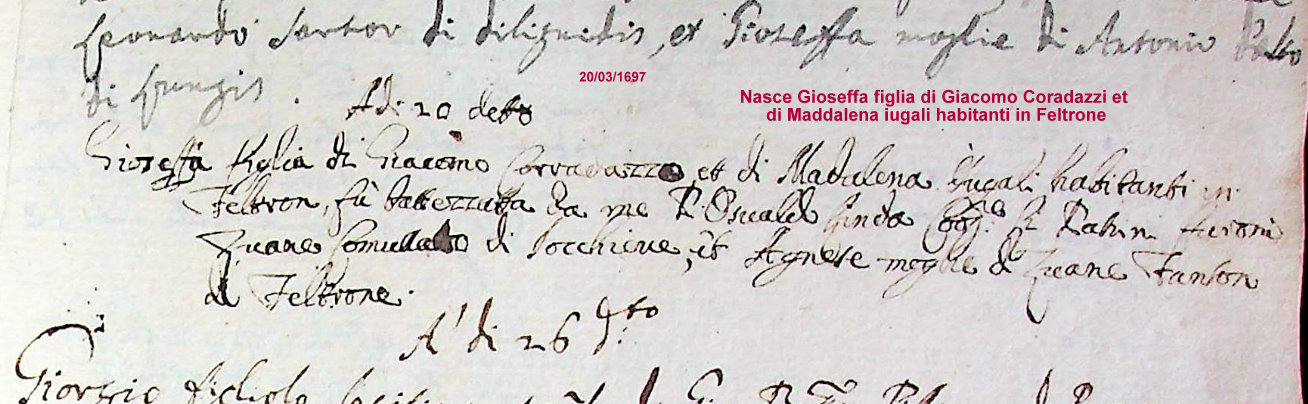 Leonardo Sartor di Dilignidis, et Gioseffa moglie di Antonio
di Frungis.
20/03/1697
Nasce Gioseffa figlia di Giacomo Coradazzi et
di Maddalena iugali habitanti in Feltrone
Adi 20 detto
Gioseffa figlia di Giacomo Corradazzo et di Madalena iugali habitanti in
Feltron, fù battezzatta da me P. Osualdo Cap. Patrini furono
Zuane di Socchieve, et Agnese moglie di Zuane Fanton
di Feltrone.
A di 26 d.to
Giorgio figliolo